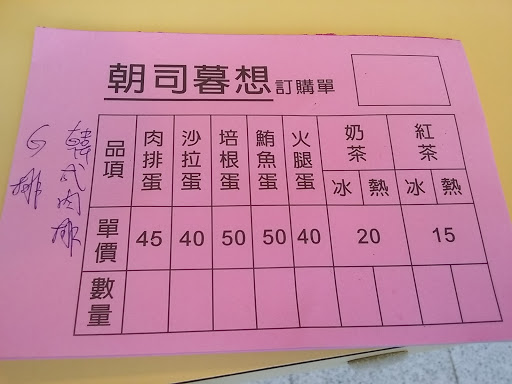 朝司暮想 訂購單
品項 肉排蛋 沙拉蛋 培根蛋 鮪魚蛋 火腿蛋 奶茶 紅茶
冰 熱 冰 熱
單價 45 40 50 50 40 20 15
數量
韓式肉排
排